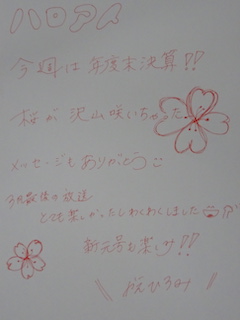 ハロアイ
今週は年度末決算!!
桜が沢山咲いちゃった
メッセージもありがとう
3月最後の放送
とても楽しかったしわくわくしました
新元号も楽しみ!!